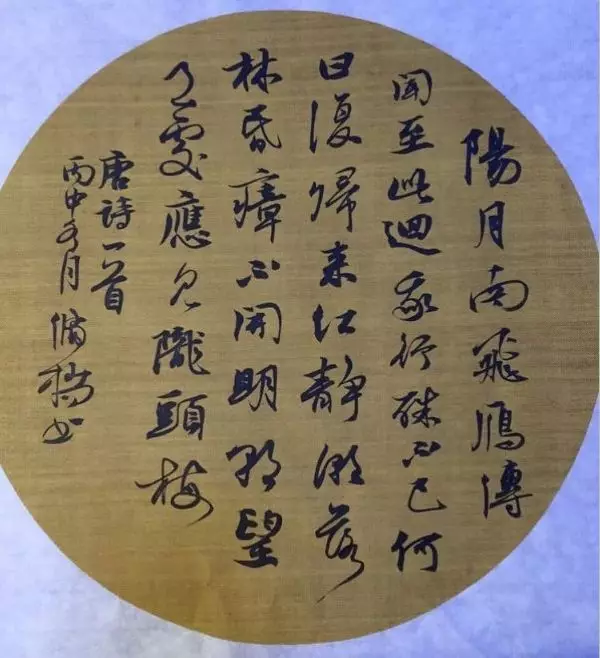 陽月南飛鴈傳
聞至此迴我行殊不已何
日復歸来江静潮落
林昏瘴不開明朝望
乡處應見隴頭梅
唐詩一首
丙申月脩楊书